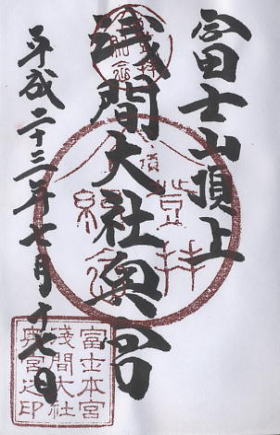 富士山頂上
浅間大社奥宮
平成二十三年七月十七日
登拝
記念
富士本宮
浅間大社
奥宮之印